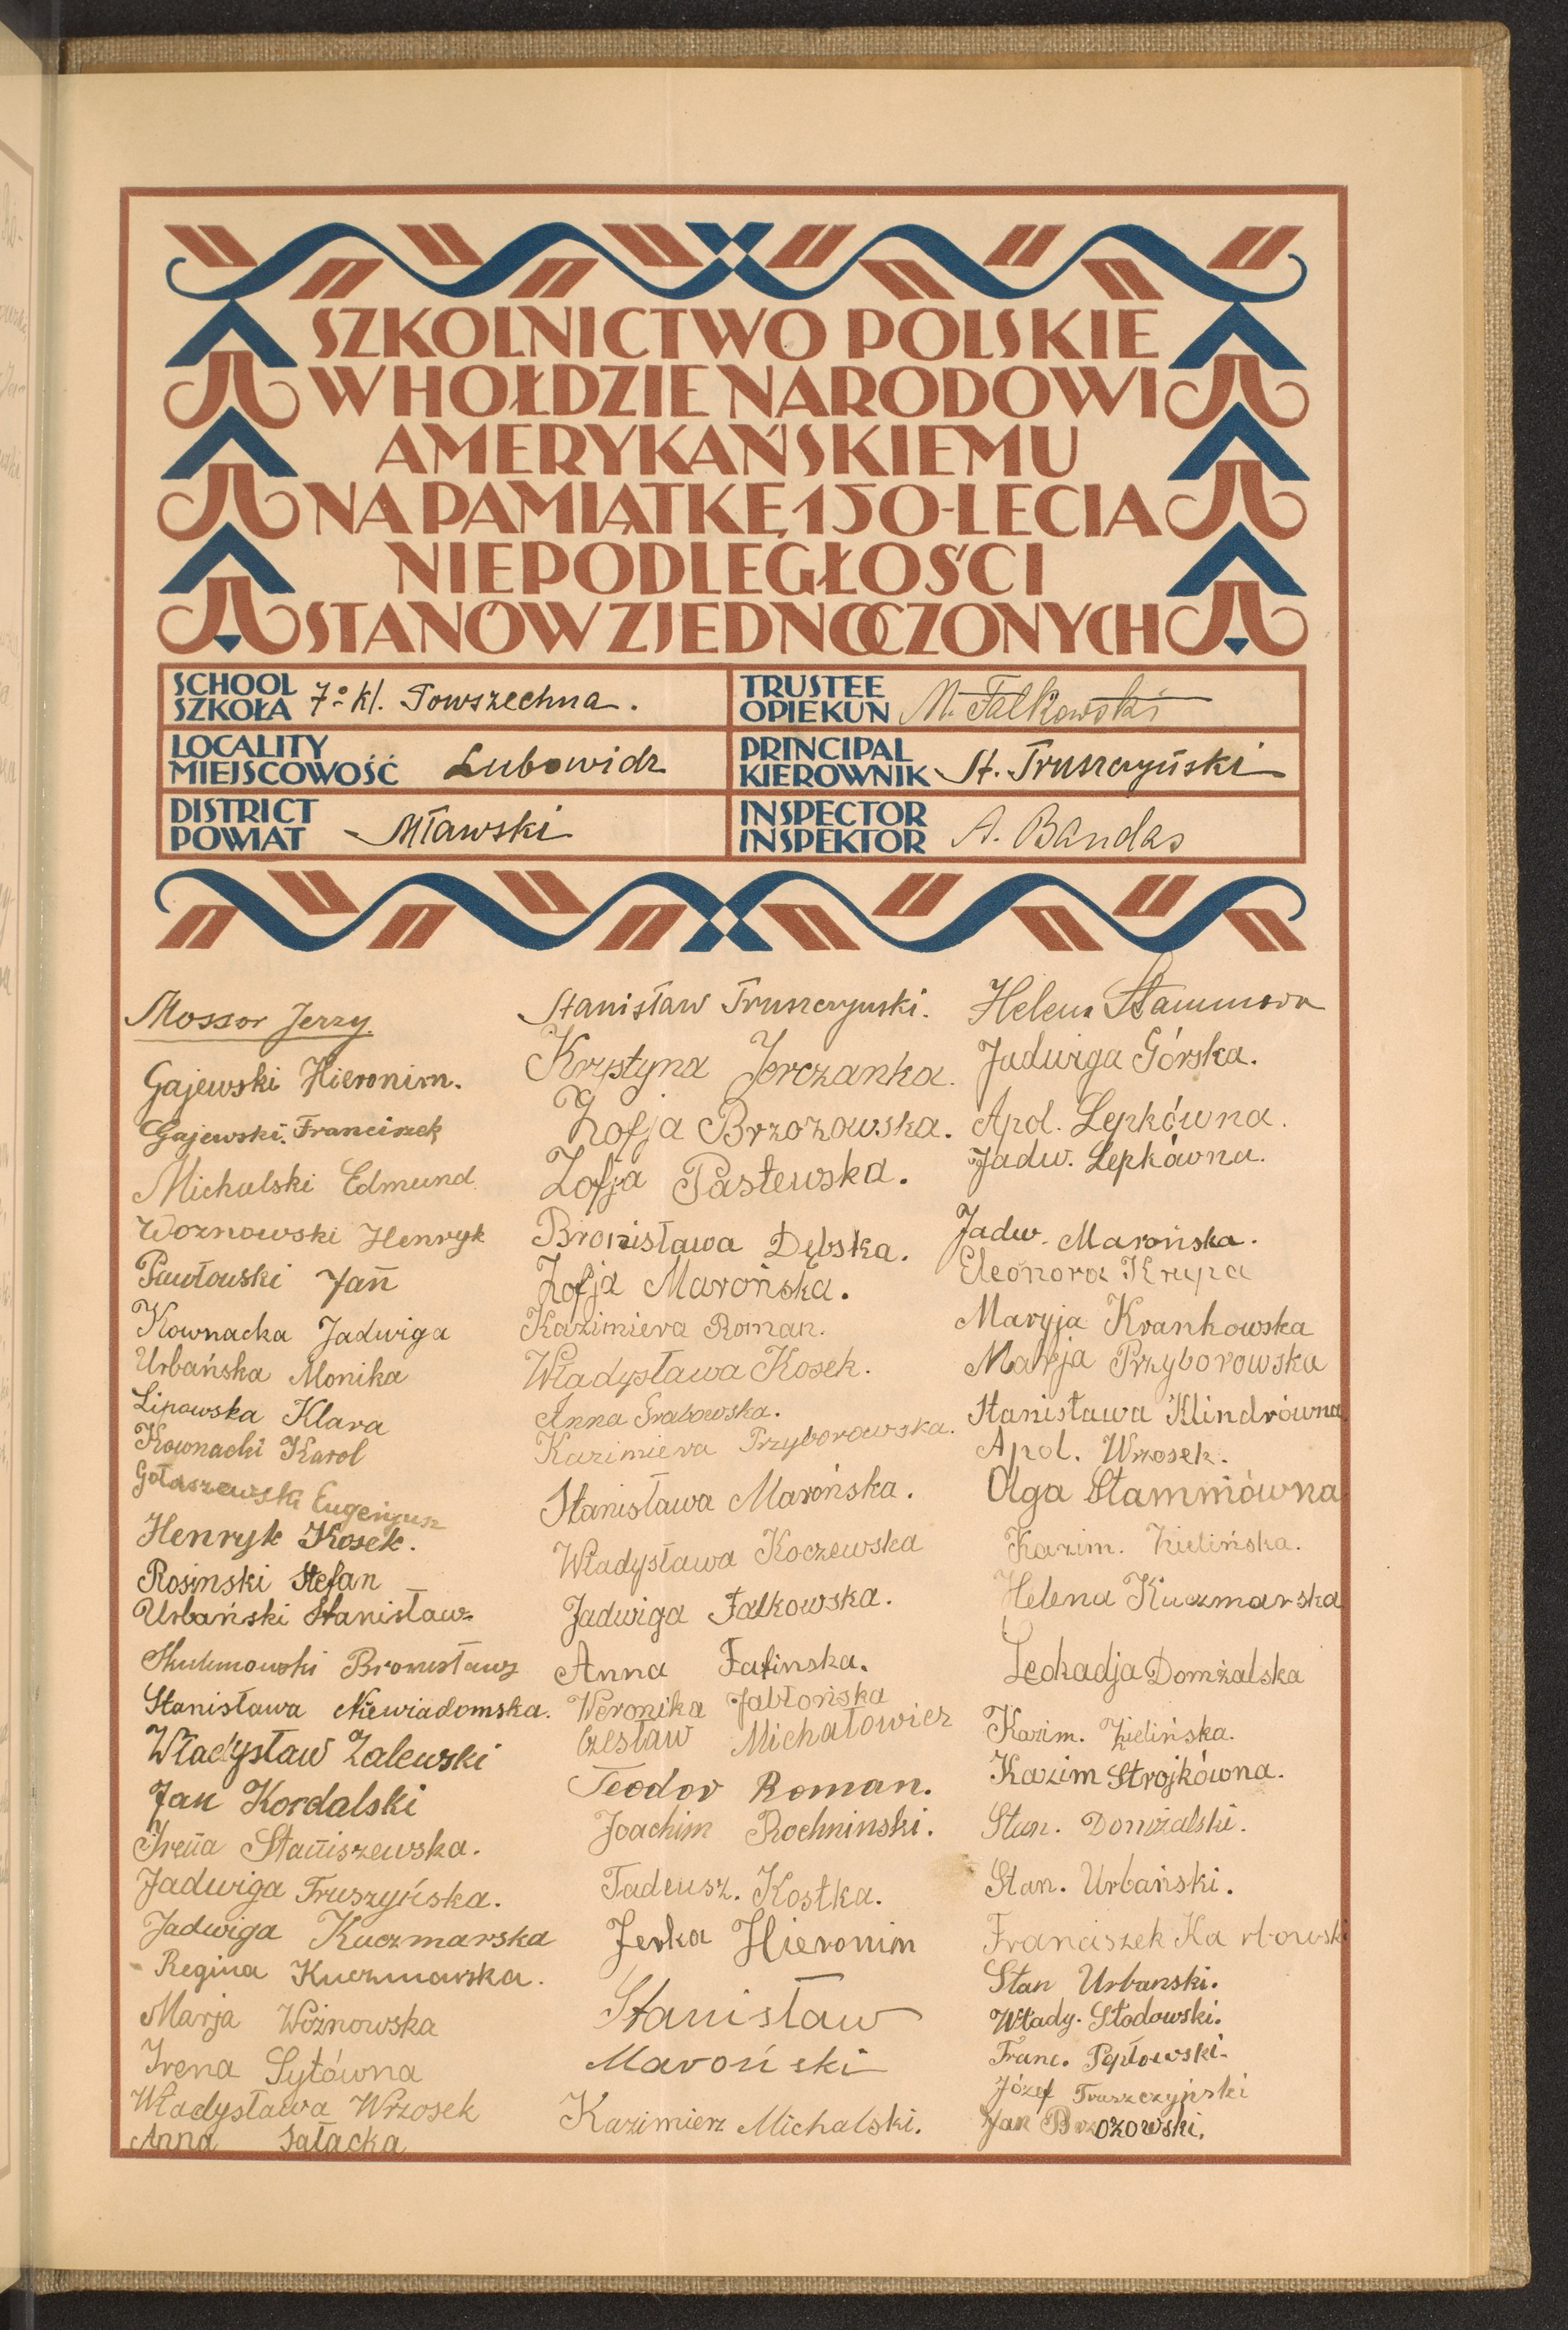 SZKOLNICTWO POLSKIE
W HOŁDZIE NARODOWI
AMERYKAŃSKIEMU
NA PAMIĄTKĘ 150-LECIA
NIEPODLEGŁOŚCI
STANÓW ZJEDNOCZONYCH
SCHOOL
SZKOŁA
7-o kl. Powszechna.
TRUSTEE
OPIEKUN
M. Falkowski
LOCALITY
MIEJSCOWOŚĆ
Lubowidz
PRINCIPAL
KIEROWNIK
St. Truszczyński
DISTRICT
POWIAT
Mławski
INSPECTOR
INSPEKTOR
A. Bandas
Mossor Jerzy
Gajewski Hieronim.
Gajewski Franciszek
Michalski Edmund
Woznowski Henryk
Pawłowski Jan
Kownacka Jadwiga
Urbańska Monika
Lipowska Klara
Kownacki Karol
Gołaszewski Eugenjusz
Henryk Kosek.
Rosinski Stefan
Urbański Stanisław
Skulmowski Bronisław
Stanisława Niewiadomska.
Władysław Zalewski
Jan Kordalski
Irena Staniszewska.
Jadwiga Truszyńska.
Jadwiga Kuczmarska
Regina Kuczmarska.
Marja Woźnowska
Irena Sytówna
Władysława Wrzosek
Anna Sałacka
Stanisław Truszczynski.
Krystyna Jerczanka.
Zofja Brzozowska.
Zofja Pastewska.
Bronisława Dębska.
Zofja Marońska.
Kazimiera Roman.
Władysława Kosek.
Anna Grabowska.
Kazimiera Przyborowska.
Stanisława Marońska.
Władysława Koczewska
Jadwiga Falkowska.
Anna Falinska.
Weronika Jabłońska
Czesław Michałowicz
Teodor Roman.
Joachim Rochninski.
Tadeusz. Kostka.
Jerka Hieronim
Stanisław
Maroński
Kazimierz Michalski.
Helena Stammowa
Jadwiga Górska.
Apol. Lepkówna.
Jadw. Lepkówna.
Jadw. Marońska.
Eleonora Krupa
Maryja Krankowska
Marja Przyborowska
Stanisława Klindrówna
Apol. Wrzosek.
Olga Stammówna
Kazim. Zielińska.
Helena Kuczmarska
Leokadja Domżalska
Kazim. Zielińska.
Kazim Strojkówna.
Stan. Domżalski.
Stan. Urbański.
Franciszek Karbowski
Stan Urbanski.
Włady. Słodowski.
Franc. Pepłowski.
Józef Truszczyński
Jan Brzozowski.